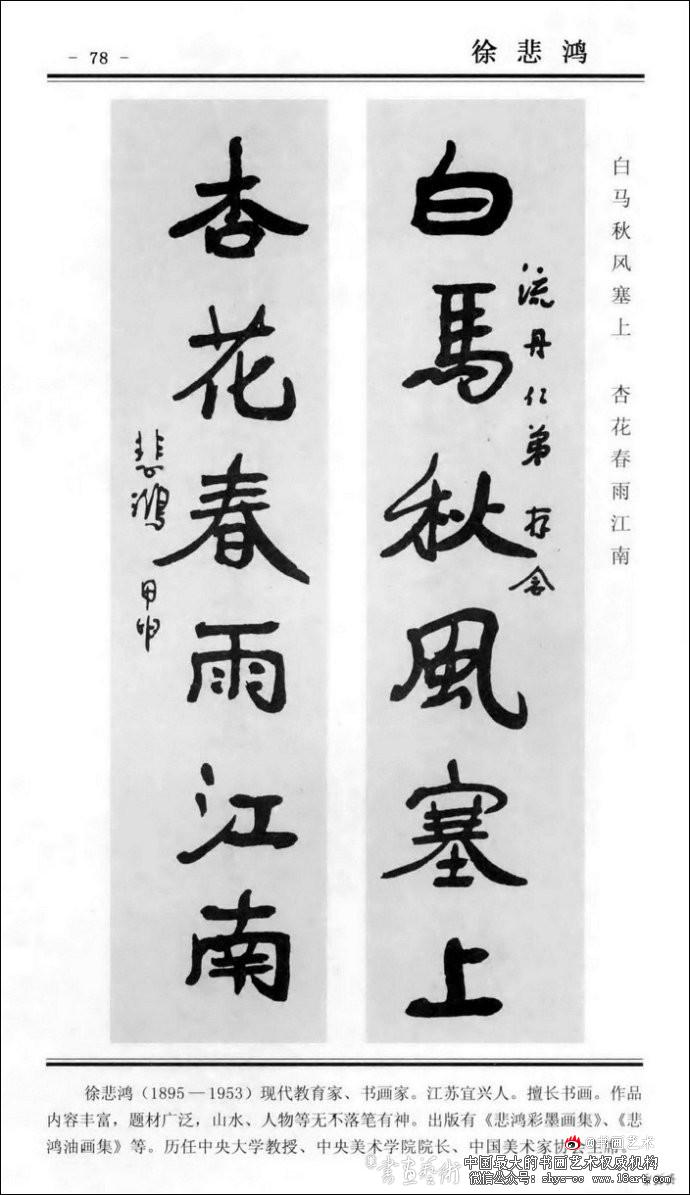 - 78 -
徐悲鸿
白马秋风塞上 杏花春雨江南
流丹仁弟存念
白馬秋風塞上
杏花春雨江南
悲鴻 甲申
徐悲鸿（1895—1953）现代教育家、书画家。江苏宜兴人。擅长书画。作品
内容丰富，题材广泛，山水、人物等无不落笔有神。出版有《悲鸿彩墨画集》、《悲
鸿油画集》等。历任中央大学教授、中央美术学院院长、中国美术家协会主席。
@书画艺术
書畫藝術
中国最大的书画艺术权威机构
微信公众号：shye-cc www.18art.com